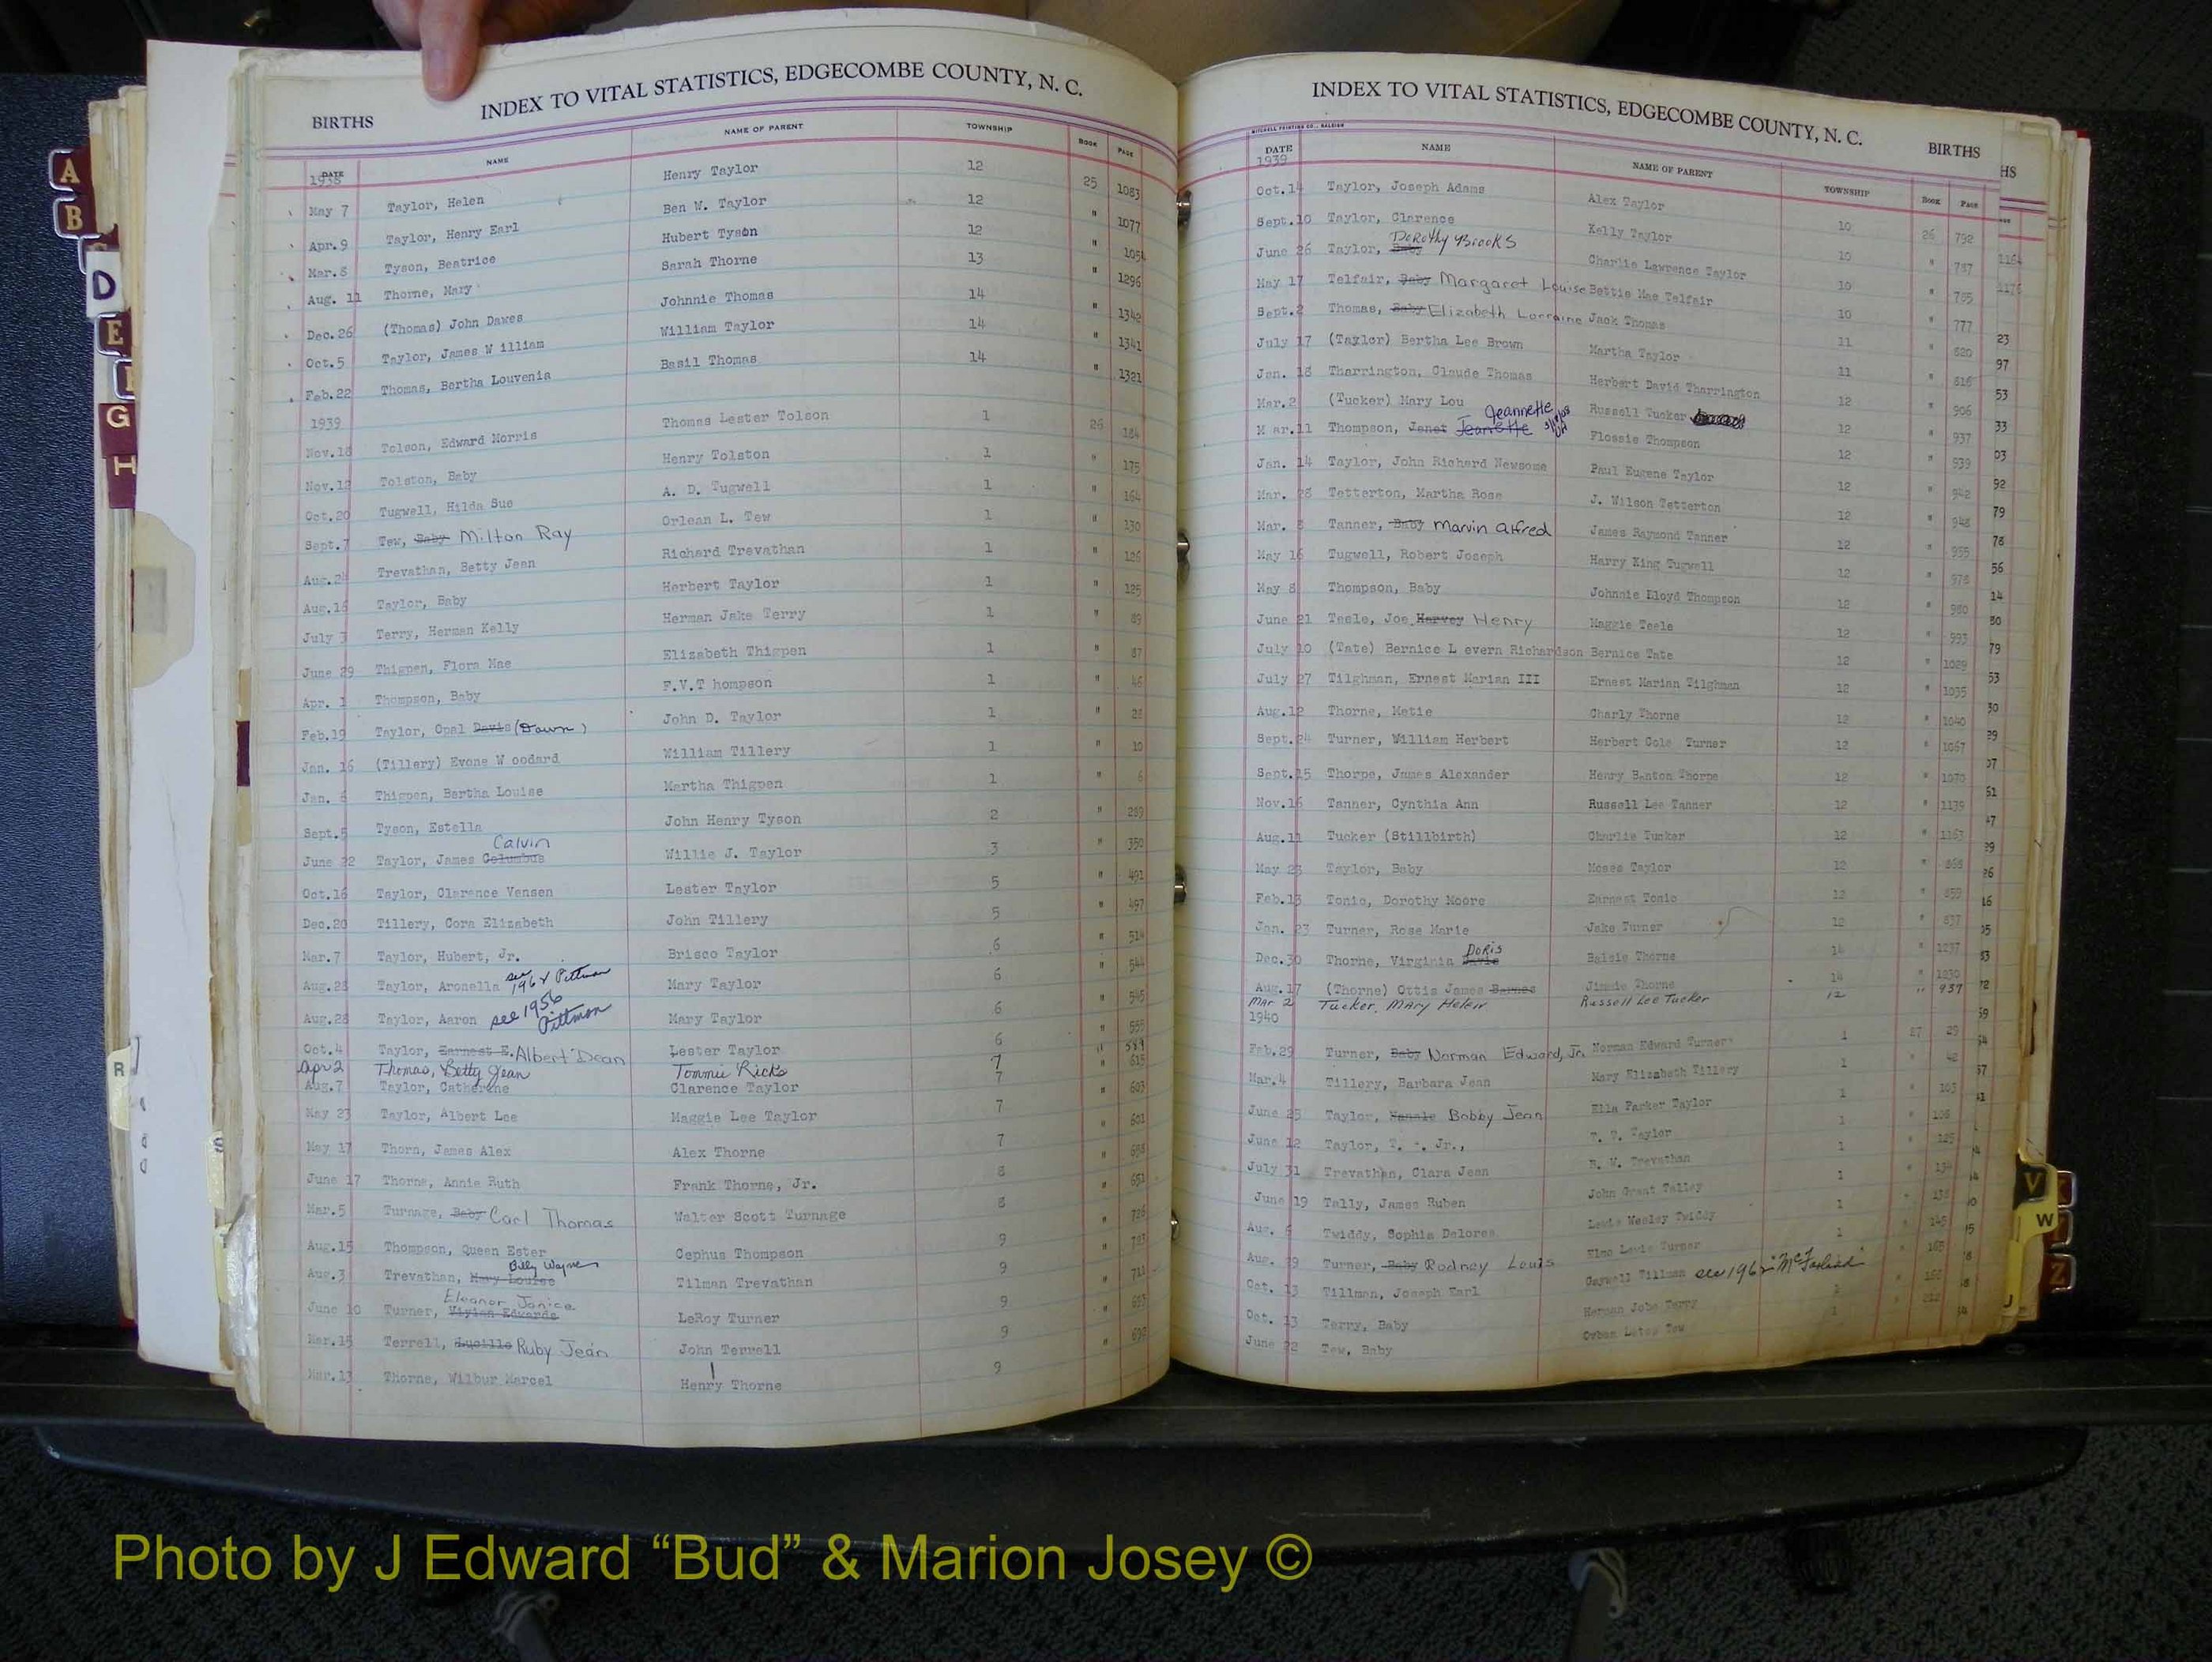 INDEX TO VITAL STATISTICS, EDGECOMBE COUNTY, N. C.
BIRTHS
DATE NAME NAME OF PARENT TOWNSHIP BOOK PAGE
1938
May 7 Taylor, Helen Henry Taylor 12 25 1083
Apr. 9 Taylor, Henry Earl Ben W. Taylor 12 " 1077
Mar. 8 Tyson, Beatrice Hubert Tyson 12 " 1051
Aug. 11 Thorne, Mary Sarah Thorne 13 " 1296
Dec. 26 (Thomas) John Dawes Johnnie Thomas 14 " 1342
Oct. 5 Taylor, James W illiam William Taylor 14 " 1341
Feb. 22 Thomas, Bertha Louvenia Basil Thomas 14 " 1321
1939
Nov. 18 Tolson, Edward Morris Thomas Lester Tolson 1 26 184
Nov. 12 Tolston, Baby Henry Tolston 1 " 175
Oct. 20 Tugwell, Hilda Sue A. D. Tugwell 1 " 164
Sept. 7 Tew, Baby Milton Ray Orlean L. Tew 1 " 130
Aug. 24 Trevathan, Betty Jean Richard Trevathan 1 " 126
Aug. 16 Taylor, Baby Herbert Taylor 1 " 125
July 3 Terry, Herman Kelly Herman Jake Terry 1 " 89
June 29 Thigpen, Flora Mae Elizabeth Thigpen 1 " 87
Apr. 1 Thompson, Baby F.V.T hompson 1 " 46
Feb. 19 Taylor, Opal Davis (Dawn) John D. Taylor 1 " 28
Jan. 16 (Tillery) Evone W oodard William Tillery 1 " 10
Jan. 6 Thigpen, Bertha Louise Martha Thigpen 1 " 6
Sept. 5 Tyson, Estella John Henry Tyson 2 " 289
Calvin
June 22 Taylor, James Columbus Willie J. Taylor 3 " 350
Oct. 16 Taylor, Clarence Vensen Lester Taylor 5 " 491
Dec. 20 Tillery, Cora Elizabeth John Tillery 5 " 497
Mar. 7 Taylor, Hubert, Jr. Brisco Taylor 6 " 514
Aug. 28 Taylor, Aronella see Pittman Mary Taylor 6 " 544
Aug. 28 Taylor, Aaron see 1956 Pittman Mary Taylor 6 " 545
Oct. 4 Taylor, Earnest E. Albert Dean Lester Taylor 6 " 555
Apr 2 Thomas, Betty Jean Tommie Ricks 7 " 589
Aug. 7 Taylor, Catherine Clarence Taylor 7 " 615
May 23 Taylor, Albert Lee Maggie Lee Taylor 7 " 603
May 17 Thorn, James Alex Alex Thorne 7 " 601
June 17 Thorne, Annie Ruth Frank Thorne, Jr. 8 " 658
Mar. 5 Turnage, Baby Carl Thomas Walter Scott Turnage 8 " 651
Aug. 15 Thompson, Queen Ester Cephus Thompson 9 " 726
Billy Wayne
Aug. 3 Trevathan, Mary Louise Tilman Trevathan 9 " 723
Eleanor Janice
June 10 Turner, Vivian Edwards LeRoy Turner 9 " 711
Mar. 15 Terrell, Lucille Ruby Jean John Terrell 9 " 693
Mar. 13 Thorne, Wilbur Marcel Henry Thorne 9 " 692
INDEX TO VITAL STATISTICS, EDGECOMBE COUNTY, N. C.
MITCHELL PRINTING CO., RALEIGH
BIRTHS
DATE NAME NAME OF PARENT TOWNSHIP BOOK PAGE
1939
Oct. 14 Taylor, Joseph Adams Alex Taylor 10 26 792
Sept. 10 Taylor, Clarence Kelly Taylor 10 " 787
Dorothy Brooks
June 26 Taylor, Baby Charlie Lawrence Taylor 10 " 785
May 17 Telfair, Baby Margaret Louise Bettie Mae Telfair 10 " 777
Sept. 2 Thomas, Baby Elizabeth Lorraine Jack Thomas 11 " 820
July 17 (Taylor) Bertha Lee Brown Martha Taylor 11 " 816
Jan. 18 Tharrington, Claude Thomas Herbert David Tharrington 12 " 906
Mar. 2 (Tucker) Mary Lou Russell Tucker 12 " 937
Jeannette
Mar. 11 Thompson, Janet Jeanette Flossie Thompson 12 " 939
Jan. 14 Taylor, John Richard Newsome Paul Eugene Taylor 12 " 942
Mar. 28 Tetterton, Martha Rose J. Wilson Tetterton 12 " 948
Mar. 8 Tanner, Baby Marvin Alfred James Raymond Tanner 12 " 955
May 16 Tugwell, Robert Joseph Harry King Tugwell 12 " 978
May 8 Thompson, Baby Johnnie Lloyd Thompson 12 " 980
June 21 Teele, Joe Harvey Henry Maggie Teele 12 " 993
July 10 (Tate) Bernice L evern Richardson Bernice Tate 12 " 1029
July 27 Tilghman, Ernest Marian III Ernest Marian Tilghman 12 " 1035
Aug. 12 Thorne, Metie Charly Thorne 12 " 1040
Sept. 24 Turner, William Herbert Herbert Cole Turner 12 " 1067
Sept. 15 Thorpe, James Alexander Henry Benton Thorpe 12 " 1070
Nov. 16 Tanner, Cynthia Ann Russell Lee Tanner 12 " 1139
Aug. 11 Tucker (Stillbirth) Charlie Tucker 12 " 1163
May 23 Taylor, Baby Moses Taylor 12 "
Feb. 13 Tonic, Dorothy Moore Earnest Tonic 12 " 859
Jan. 23 Turner, Rose Marie Jake Turner 12 " 837
Doris
Dec. 30 Thorne, Virginia Davis Thorne 14 " 1237
Aug. 17 (Thorne) Ottis James Barnes Jimmie Thorne 14 " 1230
Mar 2 Tucker, Mary Helen Russell Lee Tucker 12 " 937
1940
Feb. 29 Turner, Baby Norman Edward, Jr. Norman Edward Turner 1 27 29
Mar. 4 Tillery, Barbara Jean Mary Elizabeth Tillery 1 " 42
June 25 Taylor, Bobby Jean Ella Parker Taylor 1 " 103
June 12 Taylor, Jr., Taylor 1 " 106
July 31 Trevathan, Clara Jean R. V. Trevathan 1 " 125
June 19 Tally, James Ruben John Grant Talley 1 " 134
Aug. 6 Twiddy, Sophia Delores Lewis Wesley Twiddy 1 " 138
Aug. 9 Turner, Baby Rodney Louis Elmo Lewis Turner 1 " 145
Oct. 13 Tillman, Joseph Earl Tillman see McFarland 165
Oct. 13 Terry, Baby Herman Jobe Terry
June 22 Tew, Baby Tew 212
A
B
D
E
G
H
R
S
V
W
Z
Photo by J Edward “Bud” & Marion Josey ©